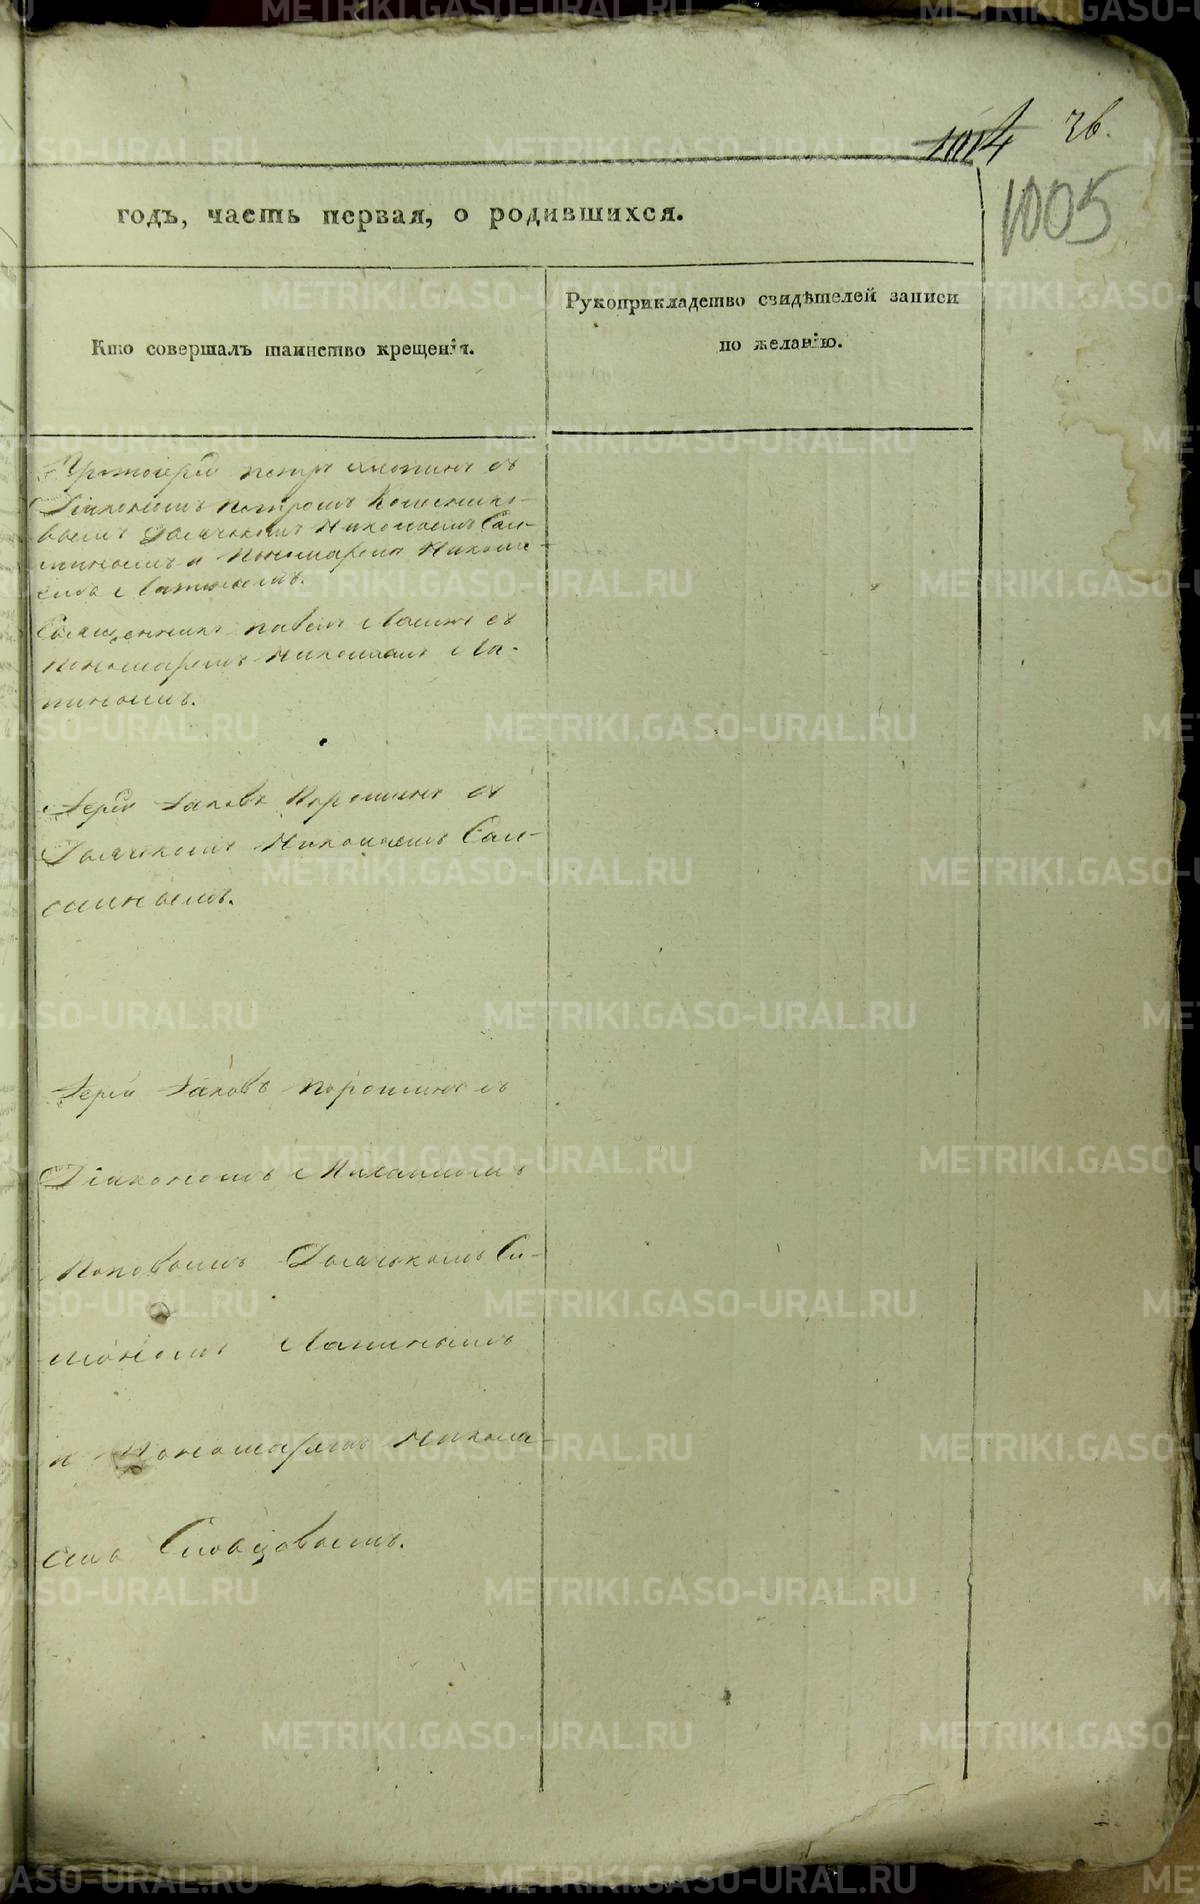 1014 26.
1005
годъ, часть первая, о родившихся.
Кто совершалъ таинство крещенія.
Рукоприкладство свидѣтелей записи
по желанію.
Протоіерей Петръ съ
Діакономъ Петромъ
вымъ Дьячькомъ Николаемъ Сал-
и Пономаремъ Никола
емъ Лапинымъ.
Священникъ Павелъ съ
Пономаремъ Николаемъ Ла-
пинымъ.
Іерей Іаковъ Порошинъ съ
Дьячькомъ Николаемъ
Іерей Іаковъ Порошинъ съ
Діакономъ Михаиломъ
Поповымъ Дьячькомъ Си-
мономъ Лапинымъ
и Пономаремъ Никола-
емъ Словцовымъ.
METRIKI.GASO-URAL.RU